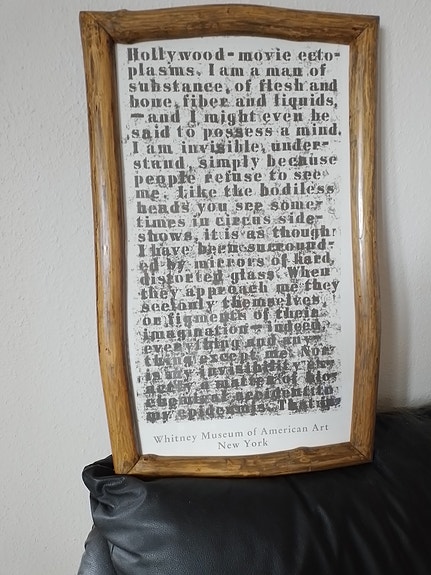 Hollywood-movie ecto-
plasms. I am a man of
substance, of flesh and
bone, fiber and liquids,
—and I might even be
said to possess a mind.
I am invisible, under-
stand, simply because
people refuse to see
me. Like the bodiless
heads you see some-
times in circus side-
shows, it is as though
I have been surround-
ed by mirrors of hard,
distorted glass. When
they approach me they
see only themselves,
or figments of their
imagination—indeed,
everything and any-
thing except me. Nor
is my invisibility exactly
a matter of bio-
chemical accident to
my epidermis. That
Whitney Museum of American Art
New York